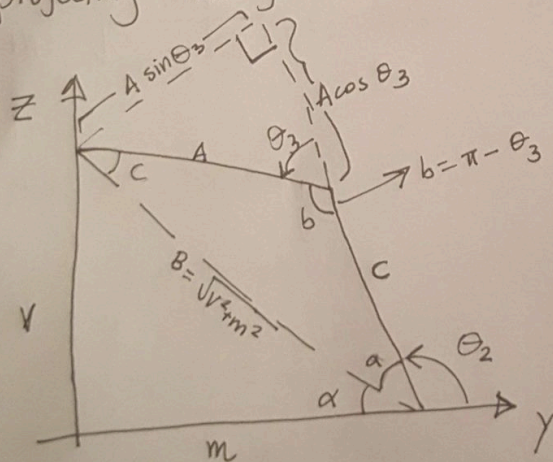 Z
A sinθ₃
Acos θ₃
θ₃
A
C
b = π - θ₃
b
C
B = √V²+m²
V
a
θ₂
α
m
Y